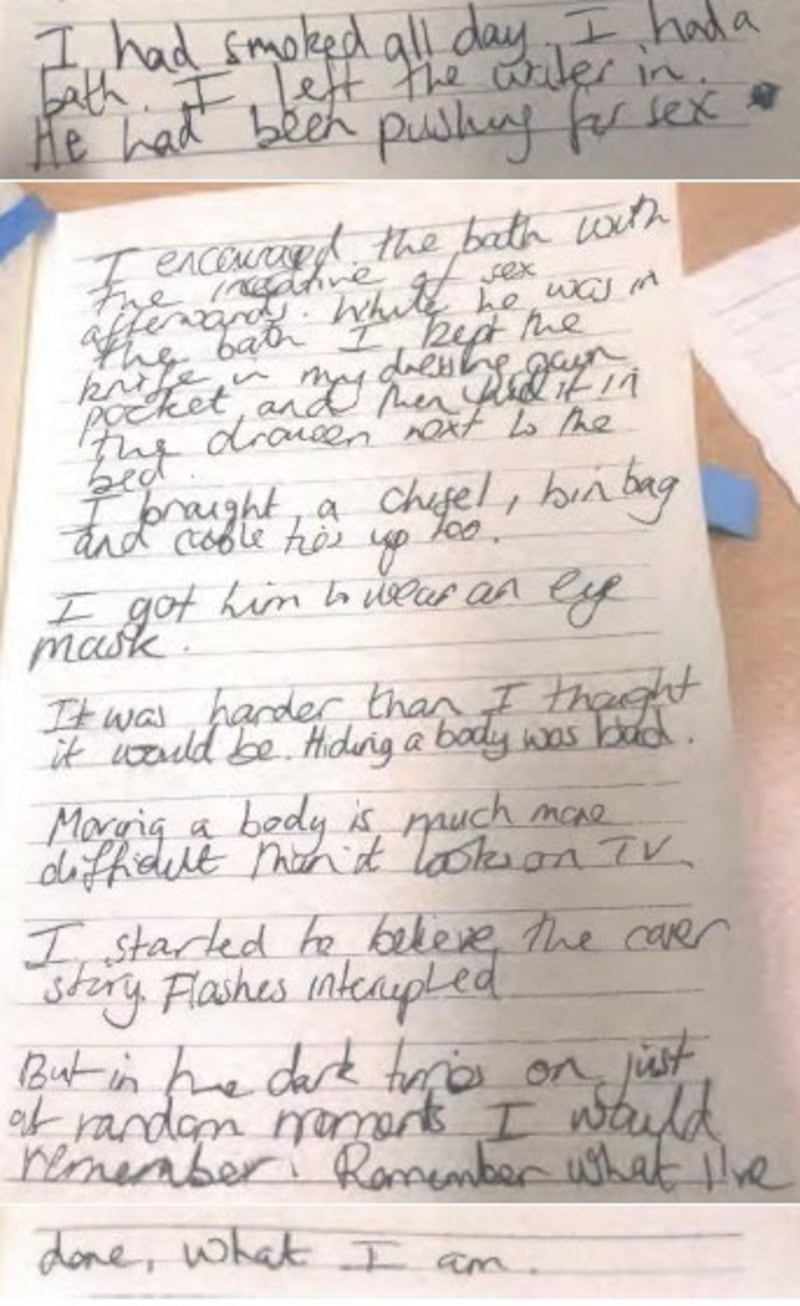 I had smoked all day. I had a
bath. I left the water in.
He had been pushing for sex
I encouraged the bath with
the incentive of sex
afterwards. While he was in
the bath I kept the
knife in my dressing gown
pocket and then hid it in
the drawer next to the
bed.
I brought a chisel, bin bag
and cable ties up too.
I got him to wear an eye
mask.
It was harder than I thought
it would be. Hiding a body was bad.
Moving a body is much more
difficult than it looks on TV.
I started to believe the cover
story. Flashes interupted
But in the dark times on just
at random moments I would
remember. Remember what I've
done, what I am.